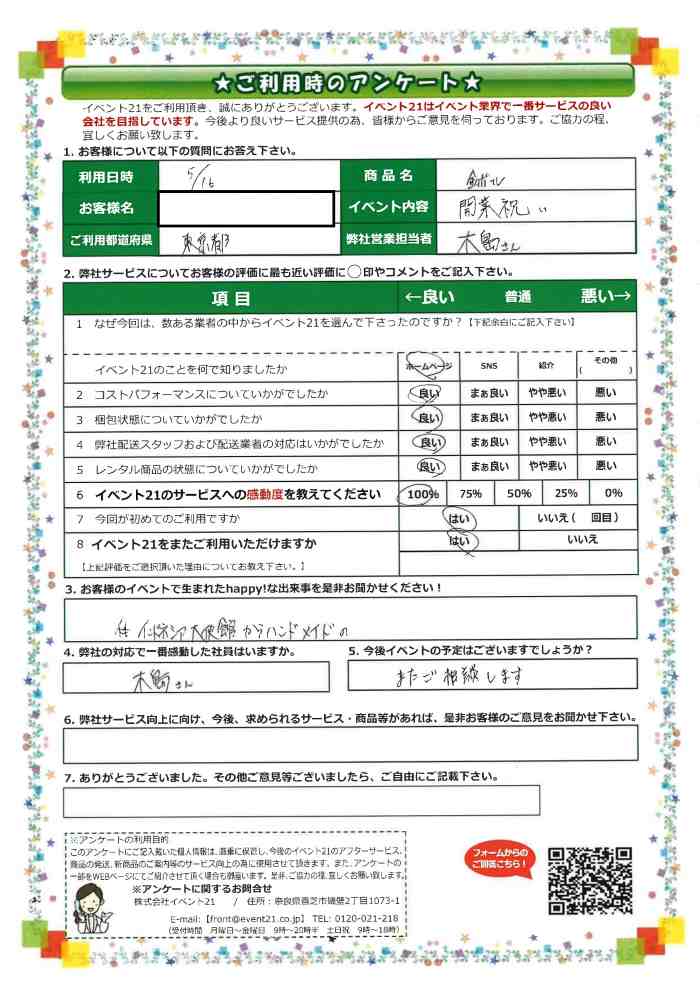 ★ご利用時のアンケート★
イベント21をご利用頂き、誠にありがとうございます。イベント21はイベント業界で一番サービスの良い
会社を目指しています。今後より良いサービス提供の為、皆様からご意見を伺っております。ご協力の程、
宜しくお願い致します。
1. お客様について以下の質問にお答え下さい。
利用日時 5/16 商品名
お客様名 イベント内容 開業祝い
ご利用都道府県 東京都 弊社営業担当者 木島さん
2. 弊社サービスについてお客様の評価に最も近い評価に○印やコメントをご記入下さい。
項目 ←良い 普通 悪い→
1 なぜ今回は、数ある業者の中からイベント21を選んで下さったのですか？【下記余白にご記入下さい】
イベント21のことを何で知りましたか ホームページ SNS 紹介 その他 ( )
2 コストパフォーマンスについていかがでしたか 良い まぁ良い やや悪い 悪い
3 梱包状態についていかがでしたか 良い まぁ良い やや悪い 悪い
4 弊社配送スタッフおよび配送業者の対応はいかがでしたか 良い まぁ良い やや悪い 悪い
5 レンタル商品の状態についていかがでしたか 良い まぁ良い やや悪い 悪い
6 イベント21のサービスへの感動度を教えてください 100% 75% 50% 25% 0%
7 今回が初めてのご利用ですか はい いいえ ( 回目)
8 イベント21をまたご利用いただけますか はい いいえ
【上記評価をご選択頂いた理由についてお教え下さい。】
3. お客様のイベントで生まれたhappy!な出来事を是非お聞かせください！
インドネシア大使館からハンドメイドの
4. 弊社の対応で一番感動した社員はいますか。
木島さん
5. 今後イベントの予定はございますでしょうか？
またご相談します
6. 弊社サービス向上に向け、今後、求められるサービス・商品等があれば、是非お客様のご意見をお聞かせ下さい。
7. ありがとうございました。その他ご意見等ございましたら、ご自由にご記載下さい。
※アンケートの利用目的
このアンケートにご記入戴いた個人情報は、厳重に保管し、今後のイベント21のアフターサービス、
商品の発送、新商品のご案内等のサービス向上の為に使用させて頂きます。また、アンケートの
一部をWEBページにてご紹介させて頂く場合も御座います。是非、ご協力の程、宜しくお願い致します。
※アンケートに関するお問合せ
株式会社イベント21 / 住所：奈良県香芝市磯壁2丁目1073-1
E-mail:【front@event21.co.jp】 TEL: 0120-021-218
(受付時間 月曜日～金曜日 9時～20時半 土日祝 9時～18時)
フォームからの
ご回答こちら！